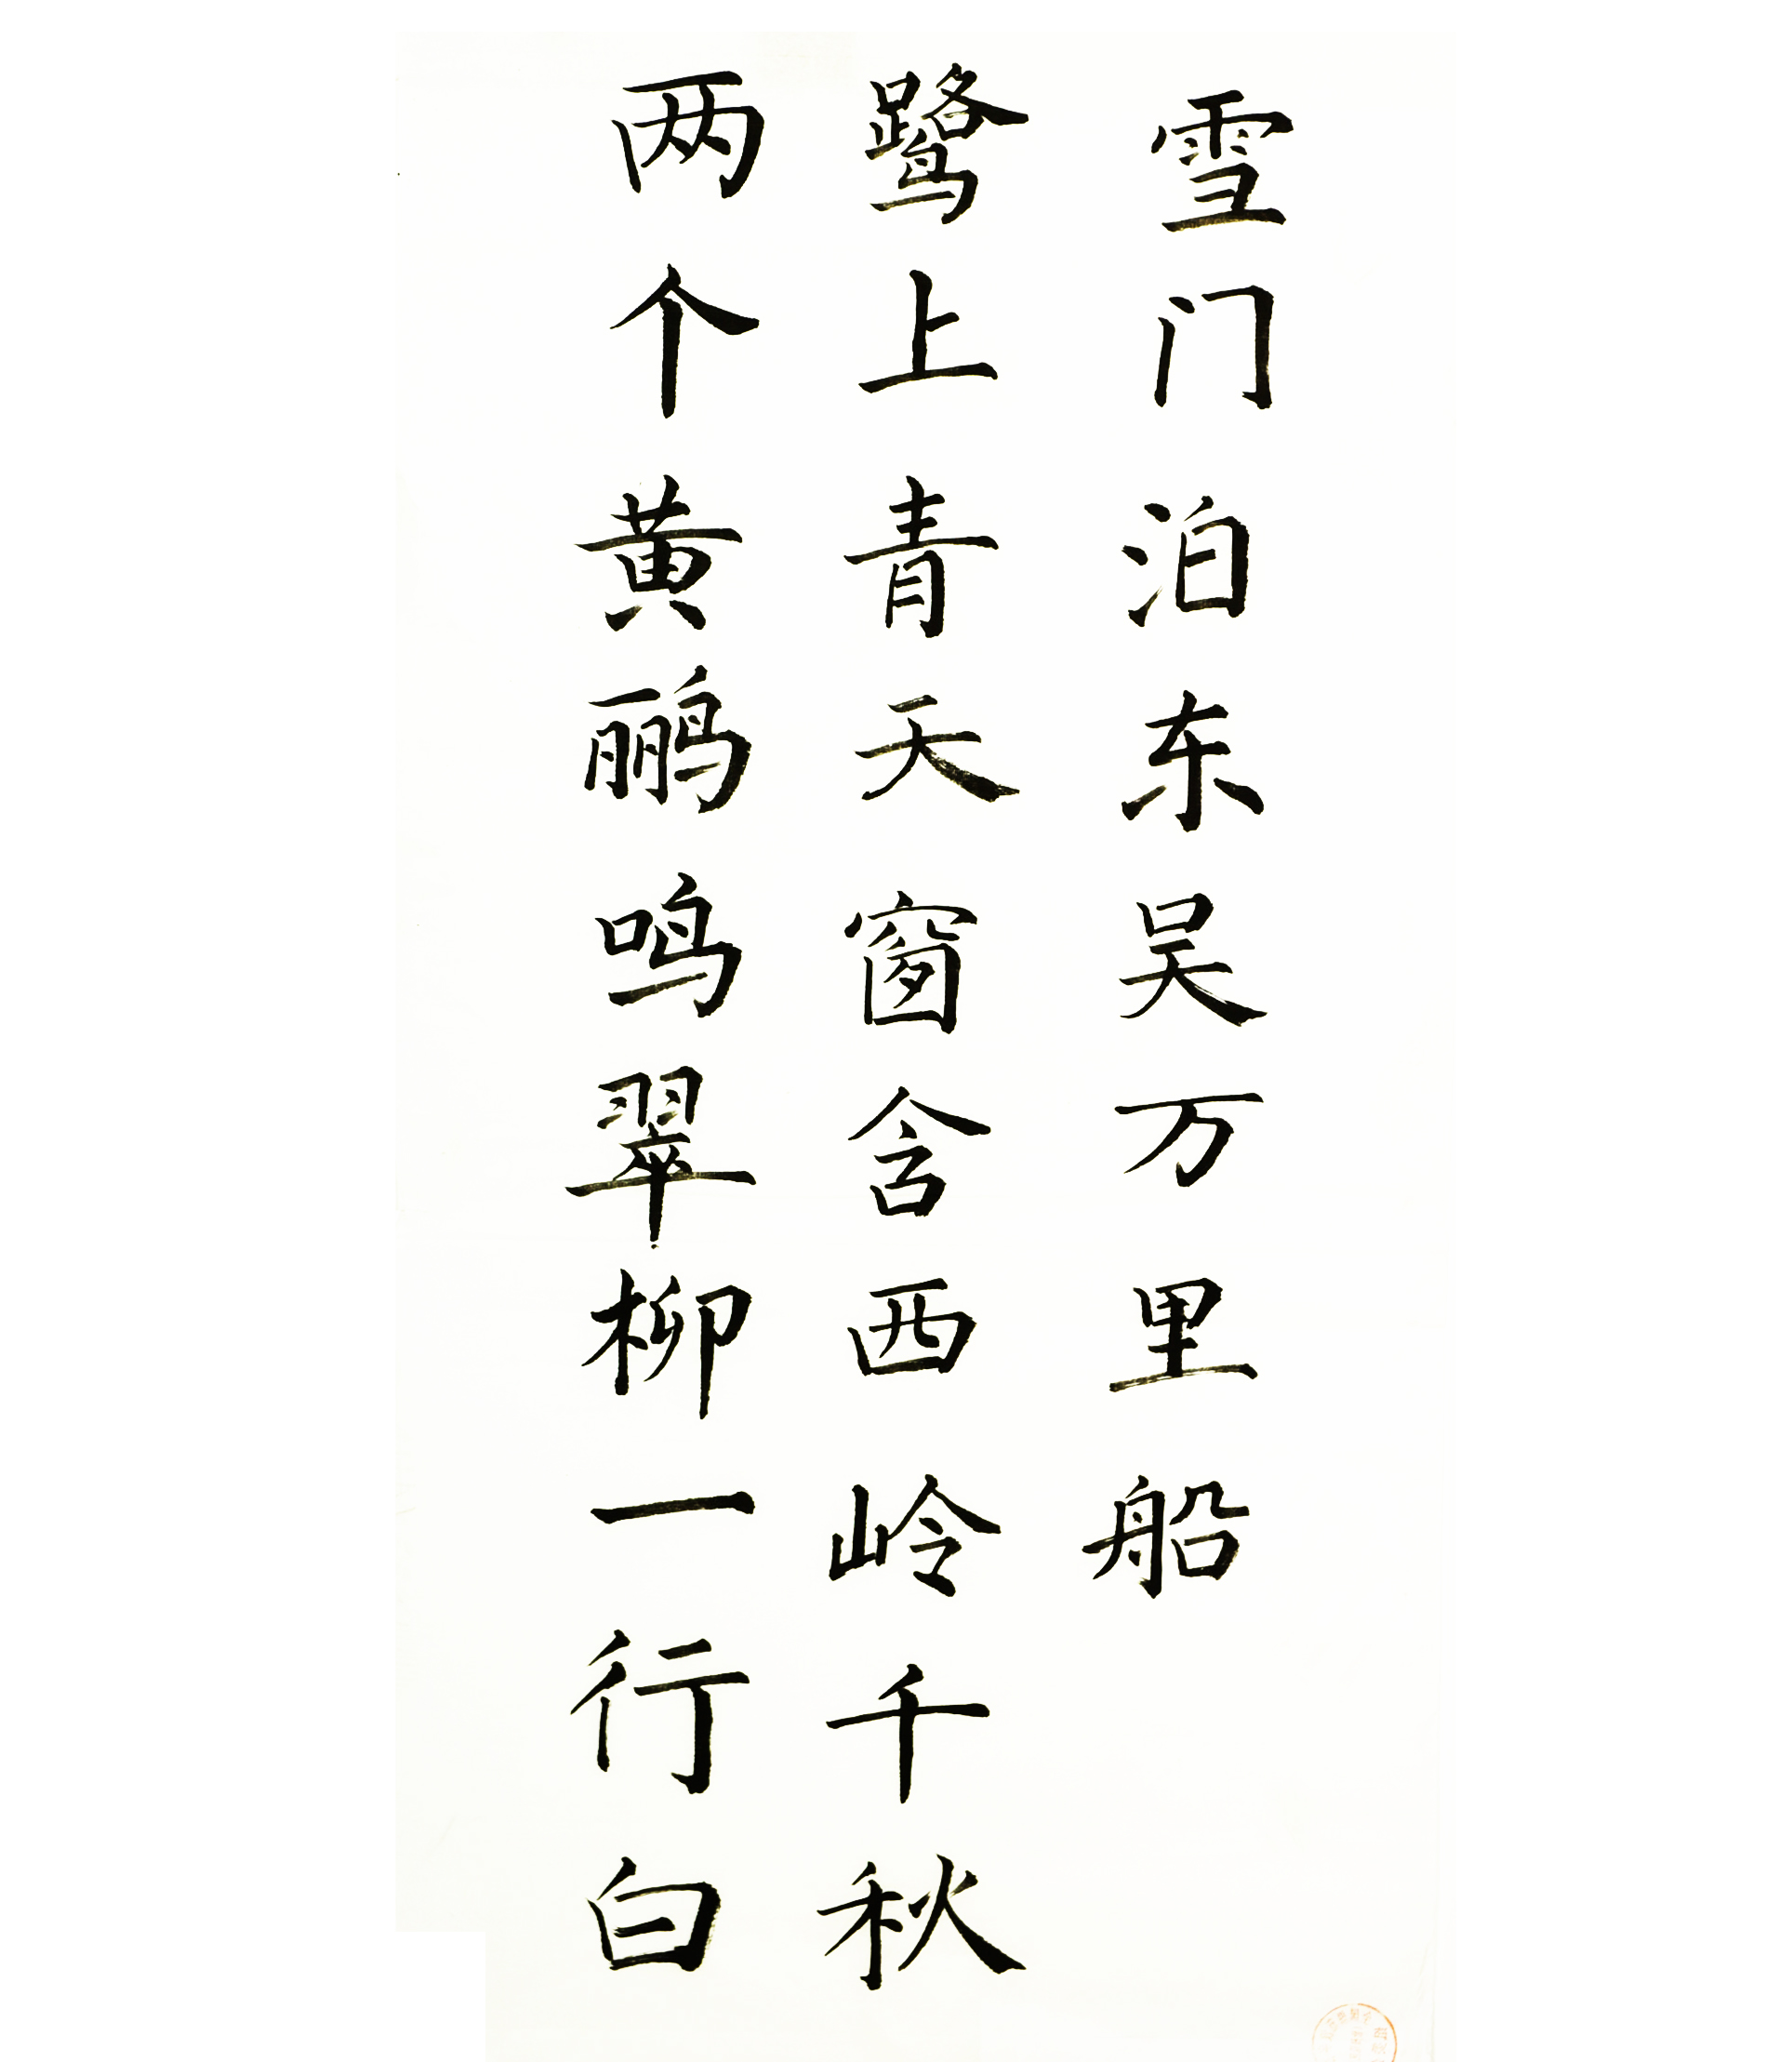 两个黄鹂鸣翠柳一行白
鹭上青天窗含西岭千秋
雪门泊东吴万里船